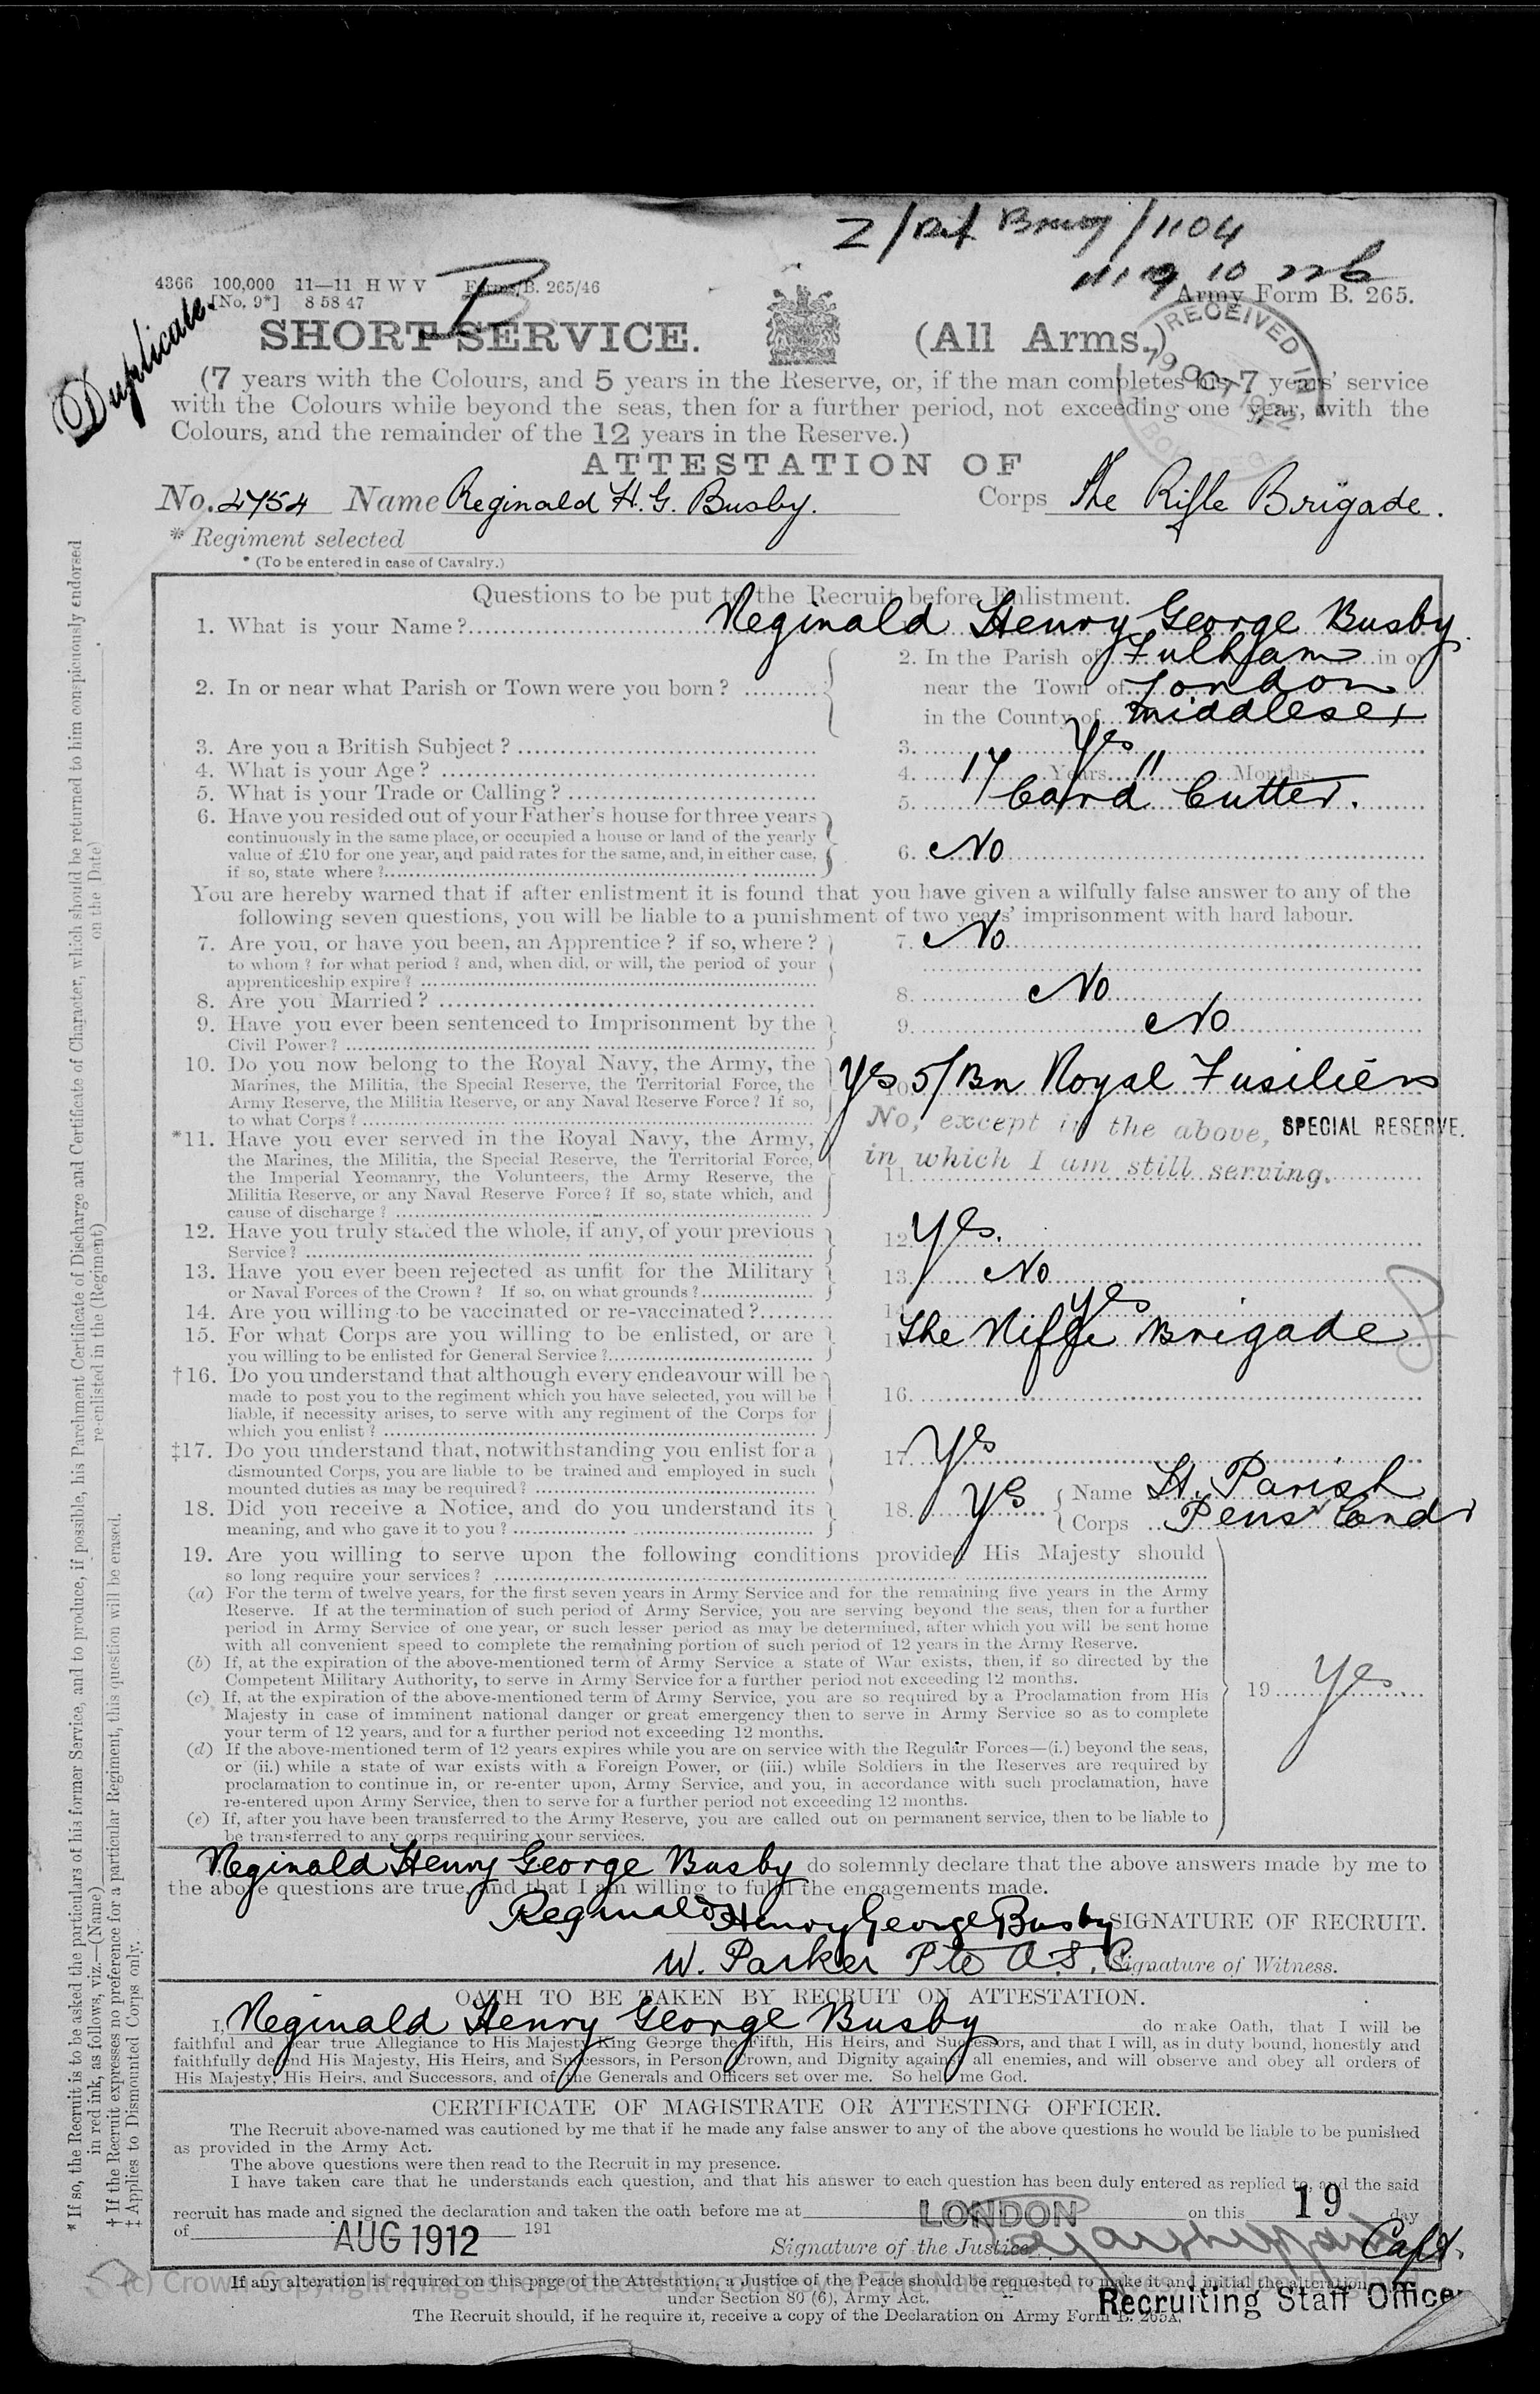 Z/Rif Brig/1104
4366 100,000 11—11 H W V Forms/B. 265/46
[No. 9*] 8 58 47
B
Army Form B. 265.
Duplicate.
SHORT SERVICE. (All Arms.)
RECEIVED IN
19 OCT 1922
(7 years with the Colours, and 5 years in the Reserve, or, if the man completes his 7 years' service
with the Colours while beyond the seas, then for a further period, not exceeding one year, with the
Colours, and the remainder of the 12 years in the Reserve.)
ATTESTATION OF
No. 4754 Name Reginald H. G. Busby. Corps The Rifle Brigade.
* Regiment selected
* (To be entered in case of Cavalry.)
Questions to be put to the Recruit before Enlistment.
1. What is your Name? Reginald Henry George Busby.
2. In or near what Parish or Town were you born? 2. In the Parish of Fulham in or
near the Town of London
in the County of Middlesex
3. Are you a British Subject? 3. Yes
4. What is your Age? 4. 17 Years 11 Months
5. What is your Trade or Calling? 5. Card Cutter.
6. Have you resided out of your Father's house for three years
continuously in the same place, or occupied a house or land of the yearly
value of £10 for one year, and paid rates for the same, and, in either case,
if so, state where? 6. No
You are hereby warned that if after enlistment it is found that you have given a wilfully false answer to any of the
following seven questions, you will be liable to a punishment of two years' imprisonment with hard labour.
7. Are you, or have you been, an Apprentice? if so, where? 7. No
to whom? for what period? and, when did, or will, the period of your
apprenticeship expire?
8. Are you Married? 8. No
9. Have you ever been sentenced to Imprisonment by the 9. No
Civil Power?
10. Do you now belong to the Royal Navy, the Army, the 10. Yes 5/Bn Royal Fusiliers
Marines, the Militia, the Special Reserve, the Territorial Force, the
Army Reserve, the Militia Reserve, or any Naval Reserve Force? If so,
to what Corps?
*11. Have you ever served in the Royal Navy, the Army, No, except in the above, SPECIAL RESERVE.
the Marines, the Militia, the Special Reserve, the Territorial Force, in which I am still serving.
the Imperial Yeomanry, the Volunteers, the Army Reserve, the 11.
Militia Reserve, or any Naval Reserve Force? If so, state which, and
cause of discharge?
12. Have you truly stated the whole, if any, of your previous 12. Yes.
Service?
13. Have you ever been rejected as unfit for the Military 13. No
or Naval Forces of the Crown? If so, on what grounds?
14. Are you willing to be vaccinated or re-vaccinated? 14. Yes
15. For what Corps are you willing to be enlisted, or are The Rifle Brigade
you willing to be enlisted for General Service?
†16. Do you understand that although every endeavour will be
made to post you to the regiment which you have selected, you will be 16.
liable, if necessity arises, to serve with any regiment of the Corps for
which you enlist?
‡17. Do you understand that, notwithstanding you enlist for a 17. Yes
dismounted Corps, you are liable to be trained and employed in such
mounted duties as may be required?
18. Did you receive a Notice, and do you understand its 18. Yes Name St. Parish
meaning, and who gave it to you? Corps Pens
19. Are you willing to serve upon the following conditions provided His Majesty should
so long require your services?
(a) For the term of twelve years, for the first seven years in Army Service and for the remaining five years in the Army
Reserve. If at the termination of such period of Army Service, you are serving beyond the seas, then for a further
period in Army Service of one year, or such lesser period as may be determined, after which you will be sent home
with all convenient speed to complete the remaining portion of such period of 12 years in the Army Reserve.
(b) If, at the expiration of the above-mentioned term of Army Service a state of War exists, then, if so directed by the
Competent Military Authority, to serve in Army Service for a further period not exceeding 12 months.
(c) If, at the expiration of the above-mentioned term of Army Service, you are so required by a Proclamation from His
Majesty in case of imminent national danger or great emergency then to serve in Army Service so as to complete
your term of 12 years, and for a further period not exceeding 12 months.
19 Yes
(d) If the above-mentioned term of 12 years expires while you are on service with the Regular Forces—(i.) beyond the seas,
or (ii.) while a state of war exists with a Foreign Power, or (iii.) while Soldiers in the Reserves are required by
proclamation to continue in, or re-enter upon, Army Service, and you, in accordance with such proclamation, have
re-entered upon Army Service, then to serve for a further period not exceeding 12 months.
(e) If, after you have been transferred to the Army Reserve, you are called out on permanent service, then to be liable to
be transferred to any corps requiring your services.
Reginald Henry George Busby do solemnly declare that the above answers made by me to
the above questions are true, and that I am willing to fulfil the engagements made.
Reginald Henry George Busby SIGNATURE OF RECRUIT.
W. Parker Pte A.S.C. Signature of Witness.
OATH TO BE TAKEN BY RECRUIT ON ATTESTATION.
I, Reginald Henry George Busby do make Oath, that I will be
faithful and bear true Allegiance to His Majesty King George the Fifth, His Heirs, and Successors, and that I will, as in duty bound, honestly and
faithfully defend His Majesty, His Heirs, and Successors, in Person, Crown, and Dignity against all enemies, and will observe and obey all orders of
His Majesty, His Heirs, and Successors, and of the Generals and Officers set over me. So help me God.
CERTIFICATE OF MAGISTRATE OR ATTESTING OFFICER.
The Recruit above-named was cautioned by me that if he made any false answer to any of the above questions he would be liable to be punished
as provided in the Army Act.
The above questions were then read to the Recruit in my presence.
I have taken care that he understands each question, and that his answer to each question has been duly entered as replied to, and the said
recruit has made and signed the declaration and taken the oath before me at LONDON on this 19 day
of AUG 1912 191
Signature of the Justice Capt.
If any alteration is required on this page of the Attestation, a Justice of the Peace should be requested to make it and initial the alteration
under Section 80 (6), Army Act.
Recruiting Staff Officer
The Recruit should, if he require it, receive a copy of the Declaration on Army Form B. 265A.
* If so, the Recruit is to be asked the particulars of his former Service, and to produce, if possible, his Parchment Certificate of Discharge and Certificate of Character, which should be returned to him conspicuously endorsed
in red ink, as follows, viz.—(Name) re-enlisted in the (Regiment) on the (Date)
† If the Recruit expresses no preference for a particular Regiment, this question will be erased.
‡ Applies to Dismounted Corps only.